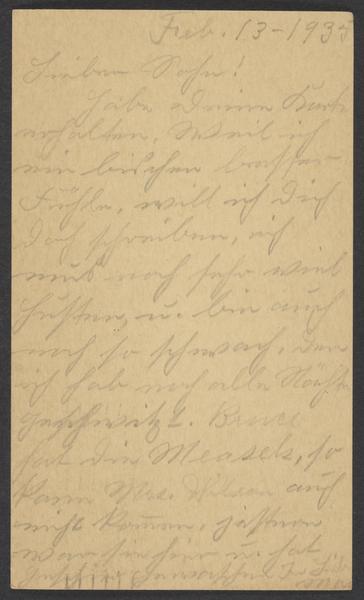 Feb. 13 - 1935
Lieber Sohn!
Habe deine Karte
erhalten. Weil ich
ein bischen besser
Fühle, will ich Dich
doch schreiben, ich
mus noch sehr viel
Husten, u. bin auch
noch so schwach, den
ich hab noch alle Nächte
geschwitzt. Bruce
hat die Measels, so
kann Mrs. Wilson auch
nicht kommen, gestern
war sie hier u. hat
gewaschen